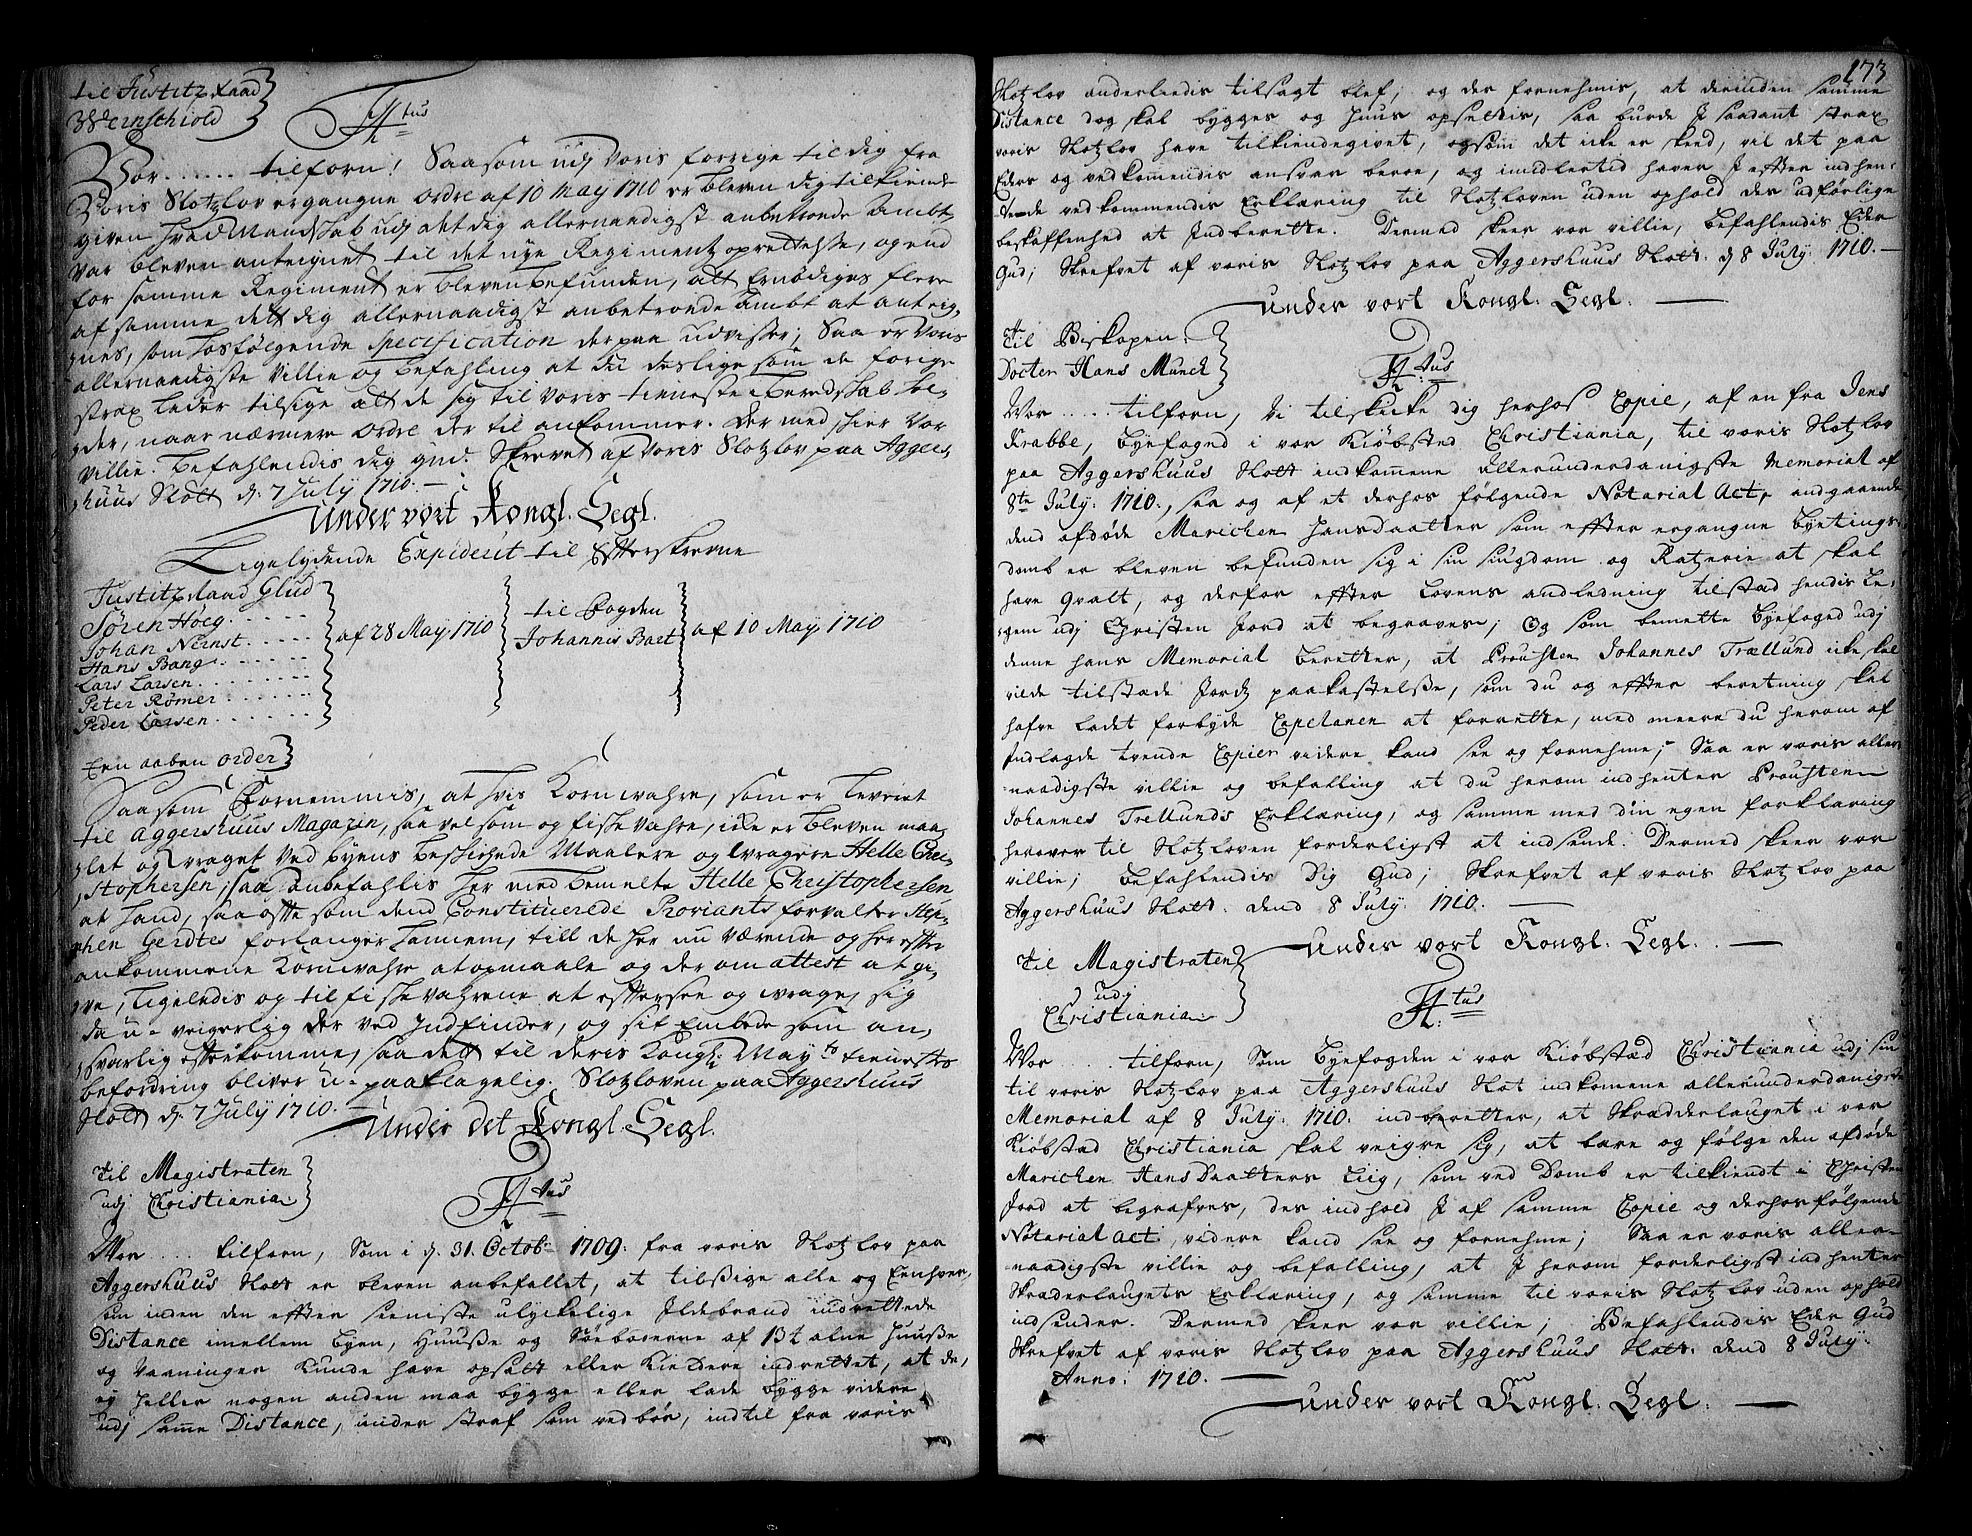 til Justitz Raad
Wernschiold
Ttus
Vor ...... tilforn! Saasom udj Voris forrige til dig fra
Voris Slotzlov ergangne ordre af 10 May 1710 er bleven dig tilkiende
given hvad Mandskab udj det dig allernaadigst anbetroede Ambt
var bleven anteignet til det nye Regimentz oprettelse, og end
for samme Regiment er bleven befunden, att Ernødiges flere
af samme dett dig allernaadigst anbetroede Ambt at anteig,
gnes, som hosfølgende Specification derpaa udviser; Saa er Voris
allernaadigste Villie og befahling at du deslige som de forige
strax leder tilsige att de sig til Voris tieneste i beredskab hol,
der, naar nærmere ordre der til ankommer. Der med skier Vor
Villie. befahlendis dig gud. Skrevet af Voris Slotzlov paa Agger,
shuus Slott d: 7 July 1710. —
Under vort Kongl. Segl.
Ligelydende Expiderit til Effterskrevne
Justitz Raad Glud
Søren Høeg . . . . .
Johan Nernst . . . . .
Hans Bang . . . . .
Lars Larsen . . . . .
Peter Rømer . . . . .
Peder Larsen . . . . .
af 28 May 1710
til Fogden
Johannis Bart
af 10 May 1710
Een aaben order
Saasom Fornemmis, at hvis Kornwahre, som er leveret
til Aggershuus Magazin, saa vel som og fiske vahre, icke er bleven maa,
let og vraget ved byens beskickede Maalere og Vragere Helle Chri,
stophersen, saa anbefahlis her med bemelte Helle Christophersen
at hand, saa offte som dend Constituerede Proviantz forvalter Step,
hen Gerdtes forlanger hannem, till de her nu værende og hereffter
ankommene Kornwahre at opmaale og der om attest at gi,
ve, ligeledis og til fiske vahrene at efftersee og vrage, sig
da u-veigerlig der ved Indfinder, og sit Embede som an,
svarlig effterkomme, saa dett til deris Kongl: Mayts tienestes
befordring bliver u-paaklagelig. Slotzloven paa Aggershuus
Slott d: 7 July 1710. —
Under det Kongl. Segl.
til Magistraten
udj Christiania.
Ttus
Vor .... tilforn, Som i d. 31. Octob: 1709. fra voris Slotzlov paa
Aggershuus Slott er bleven anbefallet, at tilsige alle og Eenhver,
som inden den effter seeniste ulyckelige Ildebrand indrettede
Distance imellem byen, Huusse og Søeboderne af 13 t alne Huusse
og Vaaninger kunde have opsatt eller Kieldere indrettet, at de,
ey heller nogen anden maa bygge eller lade bygge videre
udj samme Distance, under straf som ved bør, indtil fra voris
173
Slotzlov anderledis tilsagt blef, og der fornehmis, at derinden samme
Distance dog skal bygges og Huus opsettis, saa burde I saadant strax
voris Slotzlov have tilkiendegivet, og som det icke er skeed, vil det paa
Eders og vedkommendis ansvar beroe, og imidlertid haver I effter indhen,
tede vedkommendis Erklæring til Slotzloven uden ophold des udførlige
beskaffenhed at Indberette. Dermed skeer vor villie, befahlendis Eder
Gud; Skrefvet af voris Slotzlov paa Aggershuus Slott. d 8 July. 1710. —
Under vort Kongl. Segl. —
Til Biskopen
Docter Hans Munch
Ttus
Vor .... tilforn, Vi tilskicke dig herhos Copie, af en fra Jens
Krabbe, byefoged i vor Kiøbsted Christiania, til voris Slotzlov
paa Aggershuus Slott indkommene allerunderdanigste Memorial af
8te July. 1710., saa og af et derhos følgende Notarial Act, angaaende
dend afdøde Marichen Hansdaatter som effter ergangne byetings
domb er bleven befunden sig i sin siugdom og Ratzerie at skal
have qvalt, og derfor effter Lovens andledning tilstæd hendis Le,
gem udj Christen Jord at begraves; Og som bemelte byefoged udj
denne hans Memorial beretter, at Prousten Johannes Trællund icke skal
vilde tilstæde Jordz paakastelsse, som du og effter beretning skal
hafve ladet forbyde Capelanen at forrette, med meere du herom af
Indlagde tvende Copier videre kand see og fornehme; Saa er voris aller
naadigste villie og befalling at du herom indhenter Prousten
Johannes Trellunds Erklæring, og samme med din egen forklaring
herover til Slotzloven forderligst at indsende. Dermed skeer vor
villie; befahlendis Dig Gud; Skrefvet af voris Slotzlov paa
Aggershuus Slott. dend 8 July. 1710. —
Under vort Kongl. Segl. —
Til Magistraten
udj
Christiania.
Ttus
Vor ... tilforn, Som byefogden i vor Kiøbstæd Christiania udj sin
til voris Slotzlov paa Aggershuus Slot indkomene allerunderdanigste
Memorial af 8 July. 1710. indberetter, at Skræderlauget i vor
Kiøbstæd Christiania skal veigre sig, at bære og følge den afdøde
Marichen Hans Daatters Liig, som ved Domb er tilkiendt i Christen
Jord at begrafves, des indhold I af samme Copie og derhosfølgende
Notarial Act, videre kand see og fornehme; Saa er voris aller
naadigste villie og befalling, at I herom forderligst indhenter
Skræderlaugets Erklæring, og samme til voris Slotzlov uden ophold
indsender. Dermed skeer vor villie; Befahlendis Eder Gud
Skrefvet af voris Slotzlov paa Aggershuus Slott. dend 8 July.
Anno. 1710. —
Under vort Kongl. Segl. —